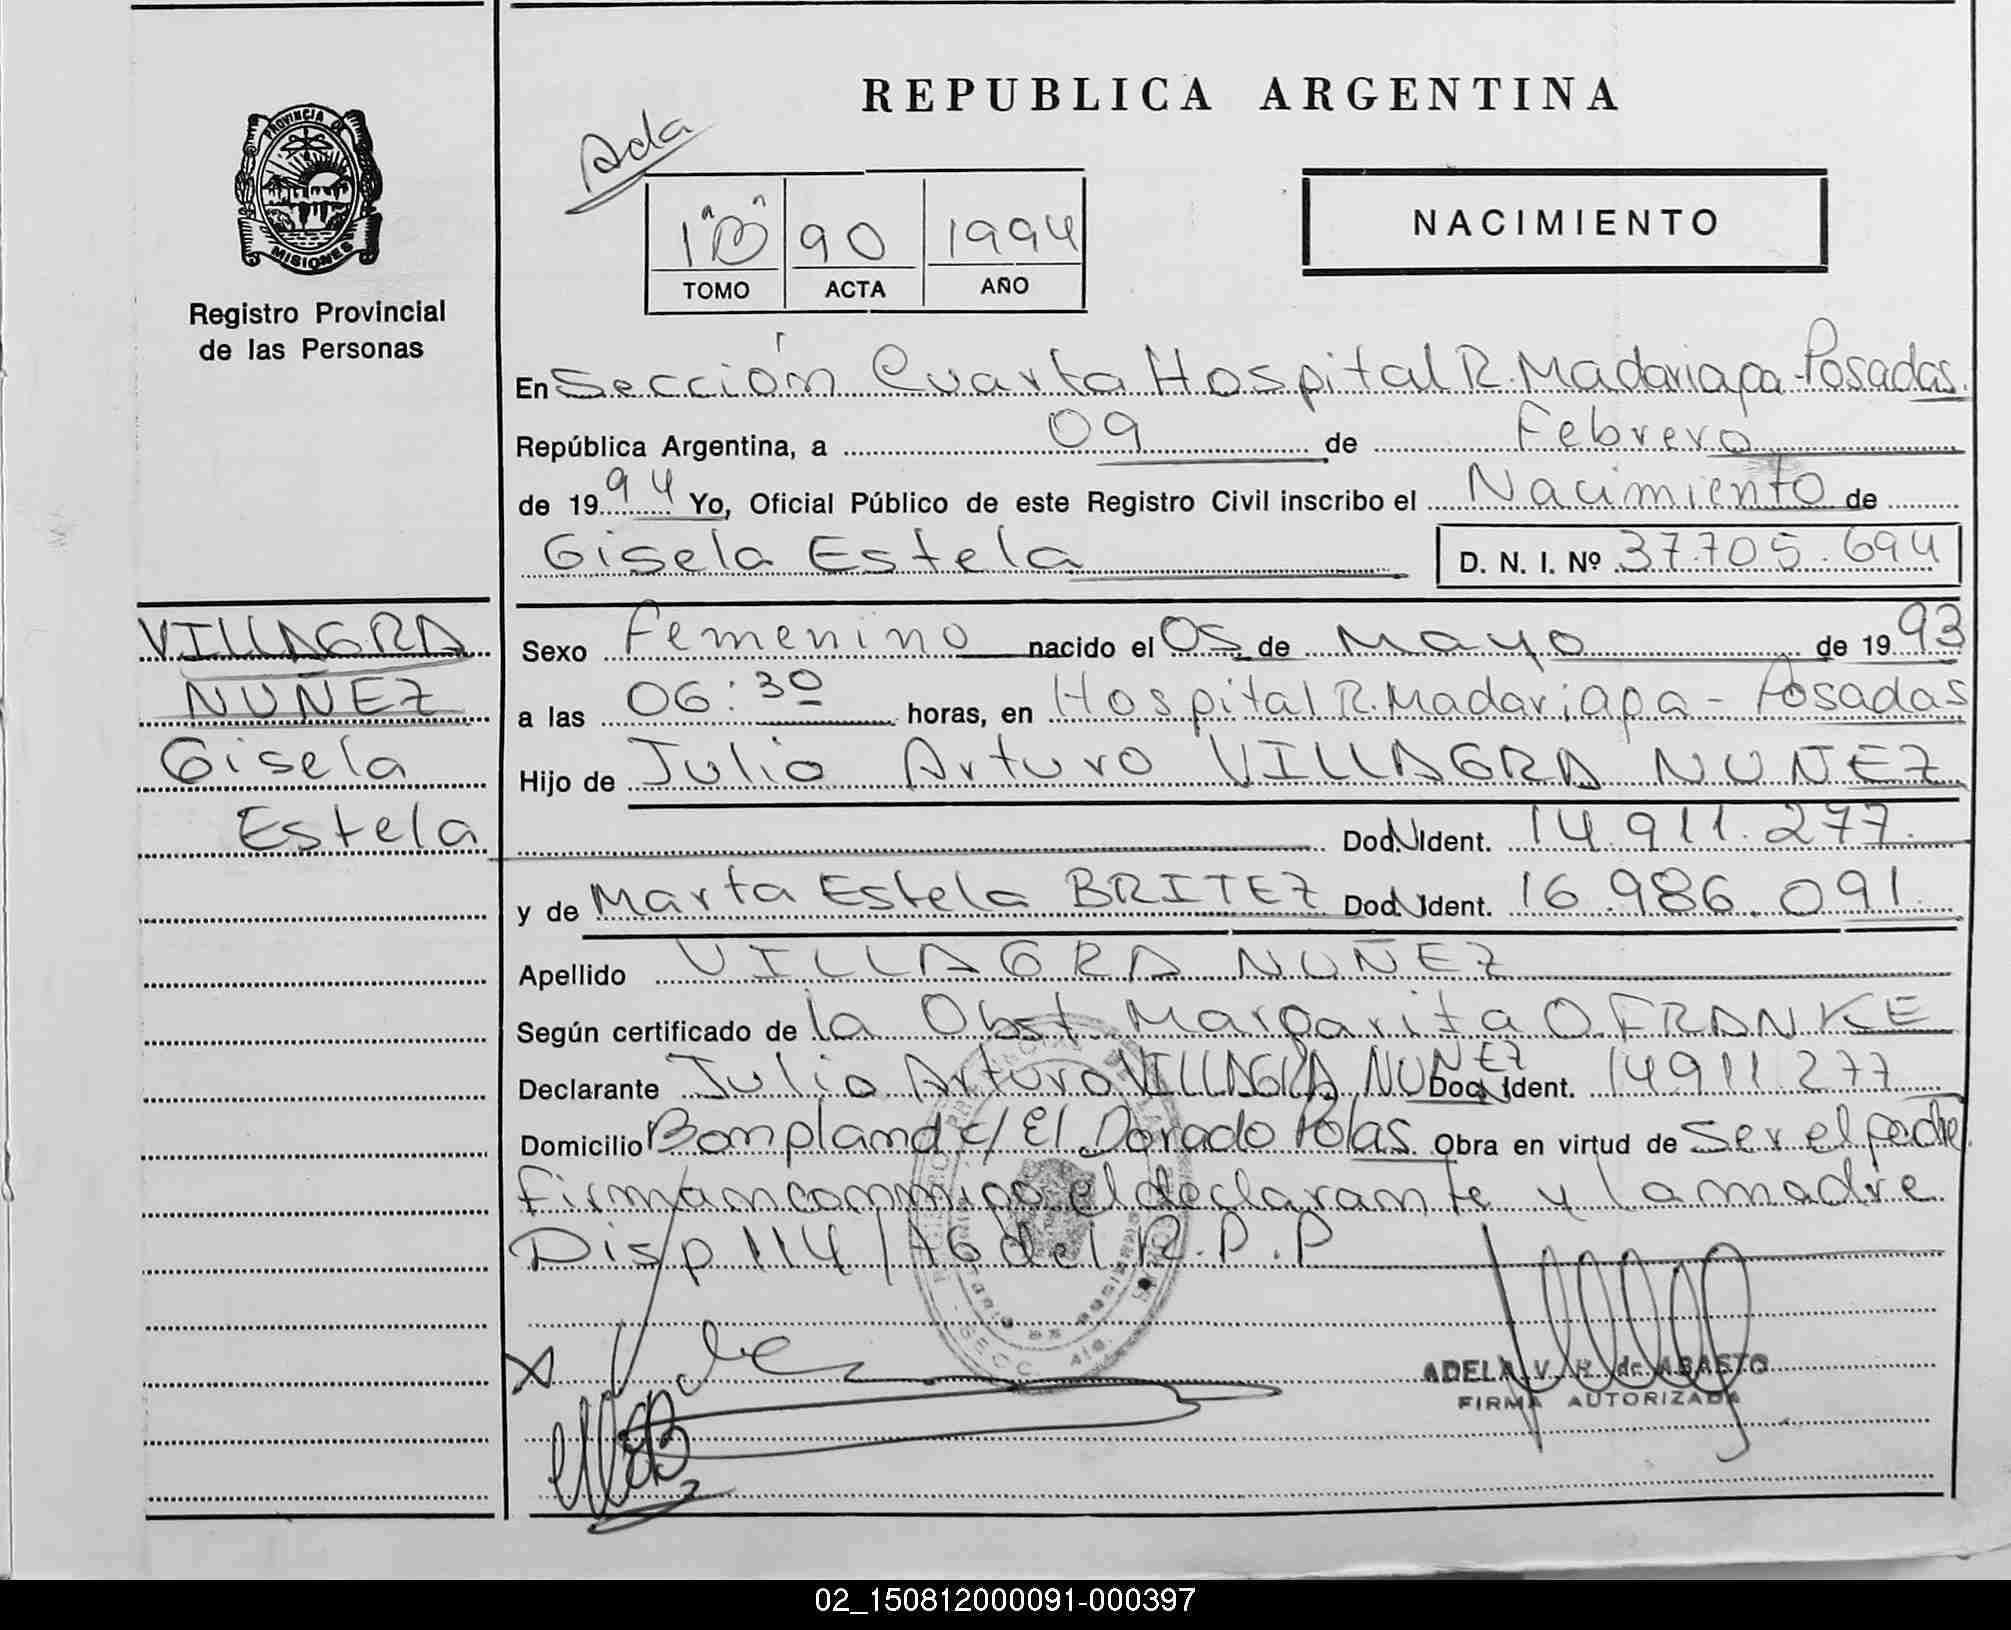 REPUBLICA ARGENTINA
Ada
PROVINCIA DE
MISIONES
Registro Provincial
de las Personas
1 "B" 90 1994
TOMO ACTA AÑO
NACIMIENTO
En Sección Cuarta Hospital R. Madariaga - Posadas.
República Argentina, a 09 de Febrero
de 1994 Yo, Oficial Público de este Registro Civil inscribo el Nacimiento de
Gisela Estela D. N. I. Nº 37.705.694
VILLAGRA
NUÑEZ
Gisela
Estela
Sexo Femenino nacido el 05 de Mayo de 1993
a las 06:30 horas, en Hospital R. Madariaga - Posadas
Hijo de Julio Arturo VILLAGRA NUÑEZ
Doc. N Ident. 14.911.277.
y de Marta Estela BRITEZ Doc. N Ident. 16.986.091.
Apellido VILLAGRA NUÑEZ
Según certificado de la Obst. Margarita O. FRANKE
Declarante Julio Arturo VILLAGRA NUÑEZ Doc. N Ident. 14.911.277
Domicilio Bompland c/ El Dorado Pdas. Obra en virtud de Ser el padre.
firman conmigo el declarante y la madre
Disp 114/76 del R.P.P
ADELA V. R. de ABASTO
FIRMA AUTORIZADA
02_150812000091-000397